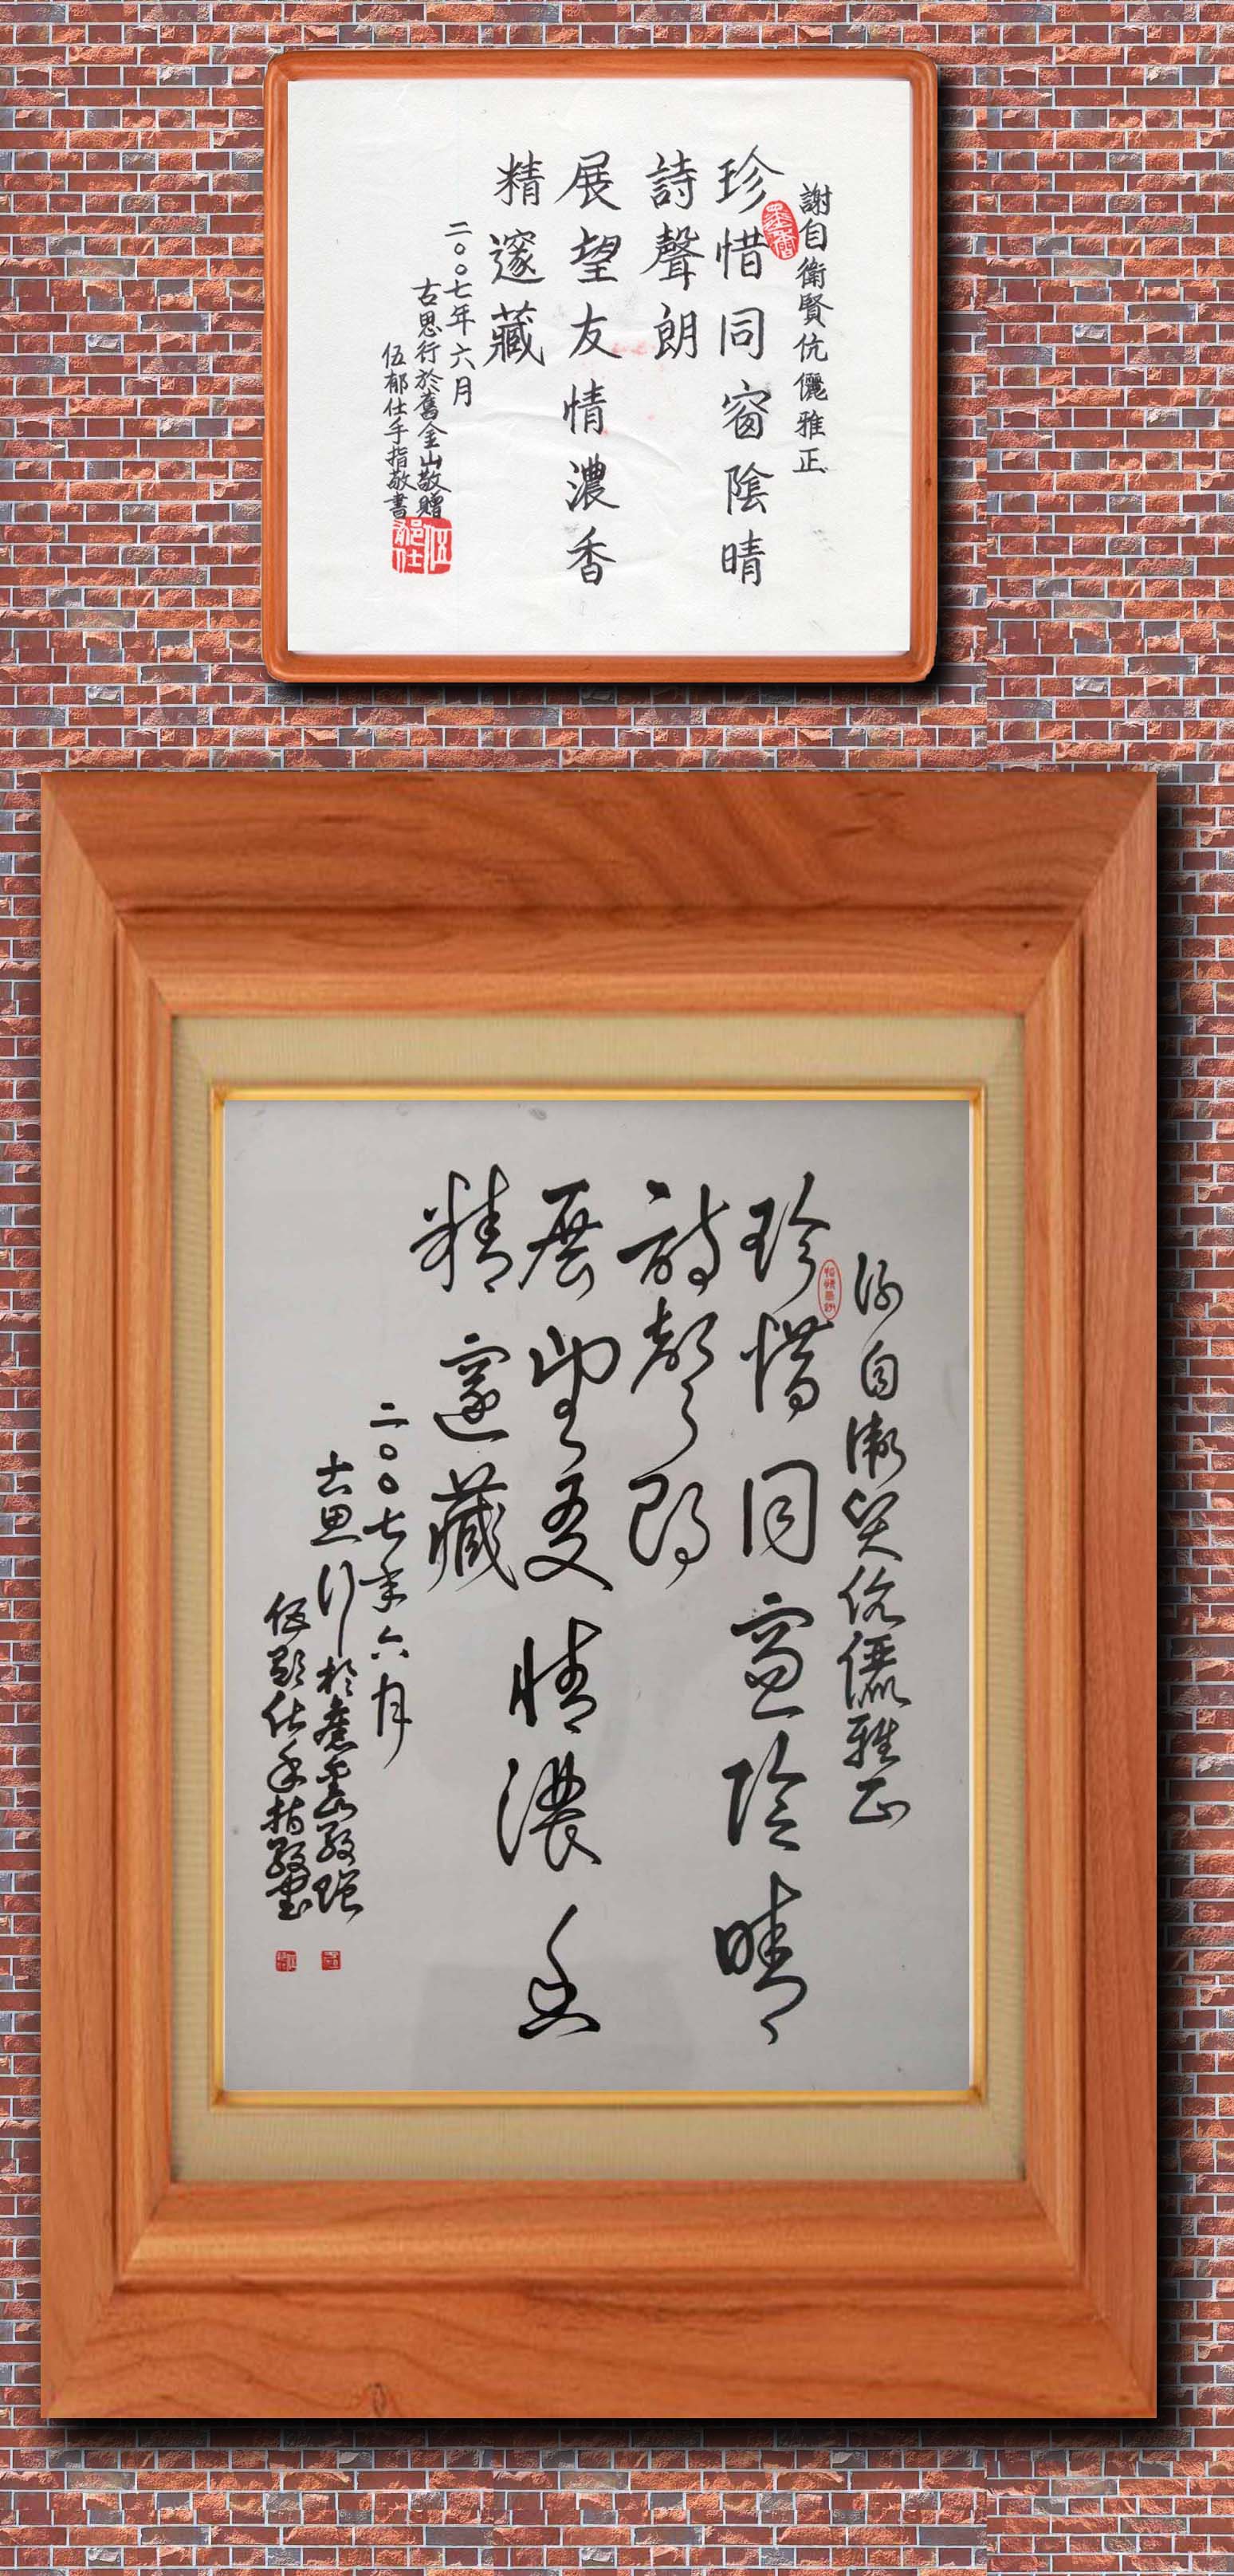 謝自衛賢伉儷雅正
珍惜同窗陰晴
詩聲朗
展望友情濃香
精邃藏
二〇〇七年六月
古思行於舊金山敬贈
伍郁仕手指敬書
伍郁仕
謝自衛賢伉儷雅正
珍惜同窗陰晴
詩聲朗
展望友情濃香
精邃藏
二〇〇七年六月
古思行於舊金山敬贈
伍郁仕手指敬書